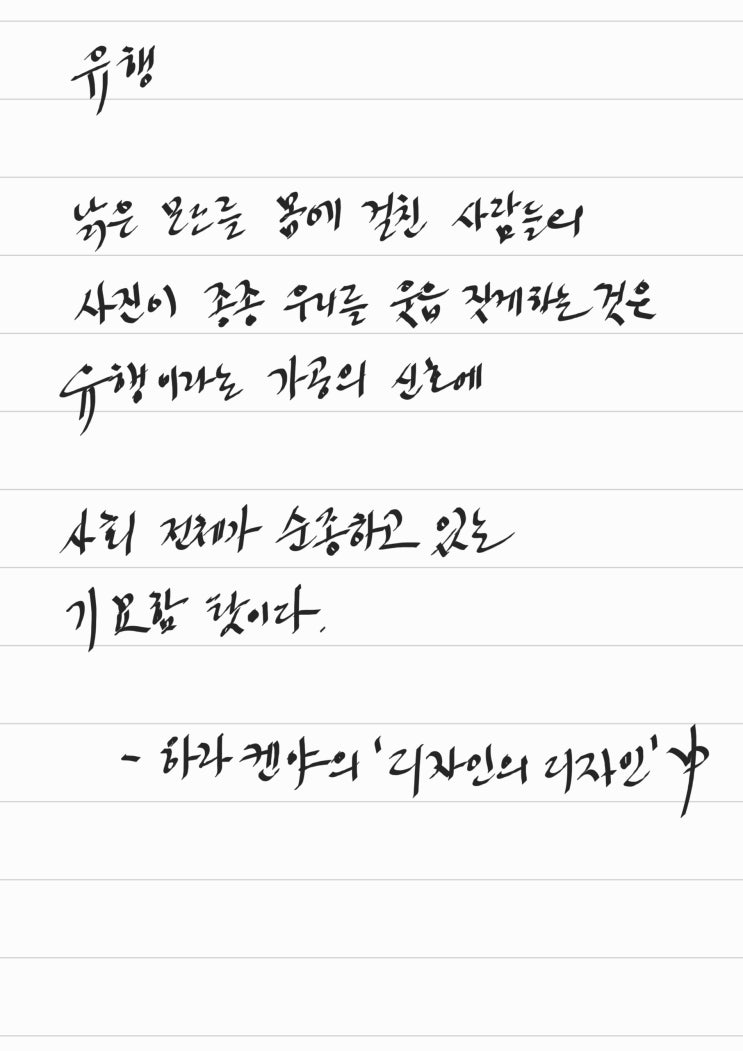 유행
낡은 모드를 몸에 걸친 사람들의
사진이 종종 우리를 웃음 짓게하는 것은
유행이라는 가공의 신호에
사회 전체가 순종하고 있는
기묘함 탓이다.
- 하라 켄야의 '디자인의 디자인' 中